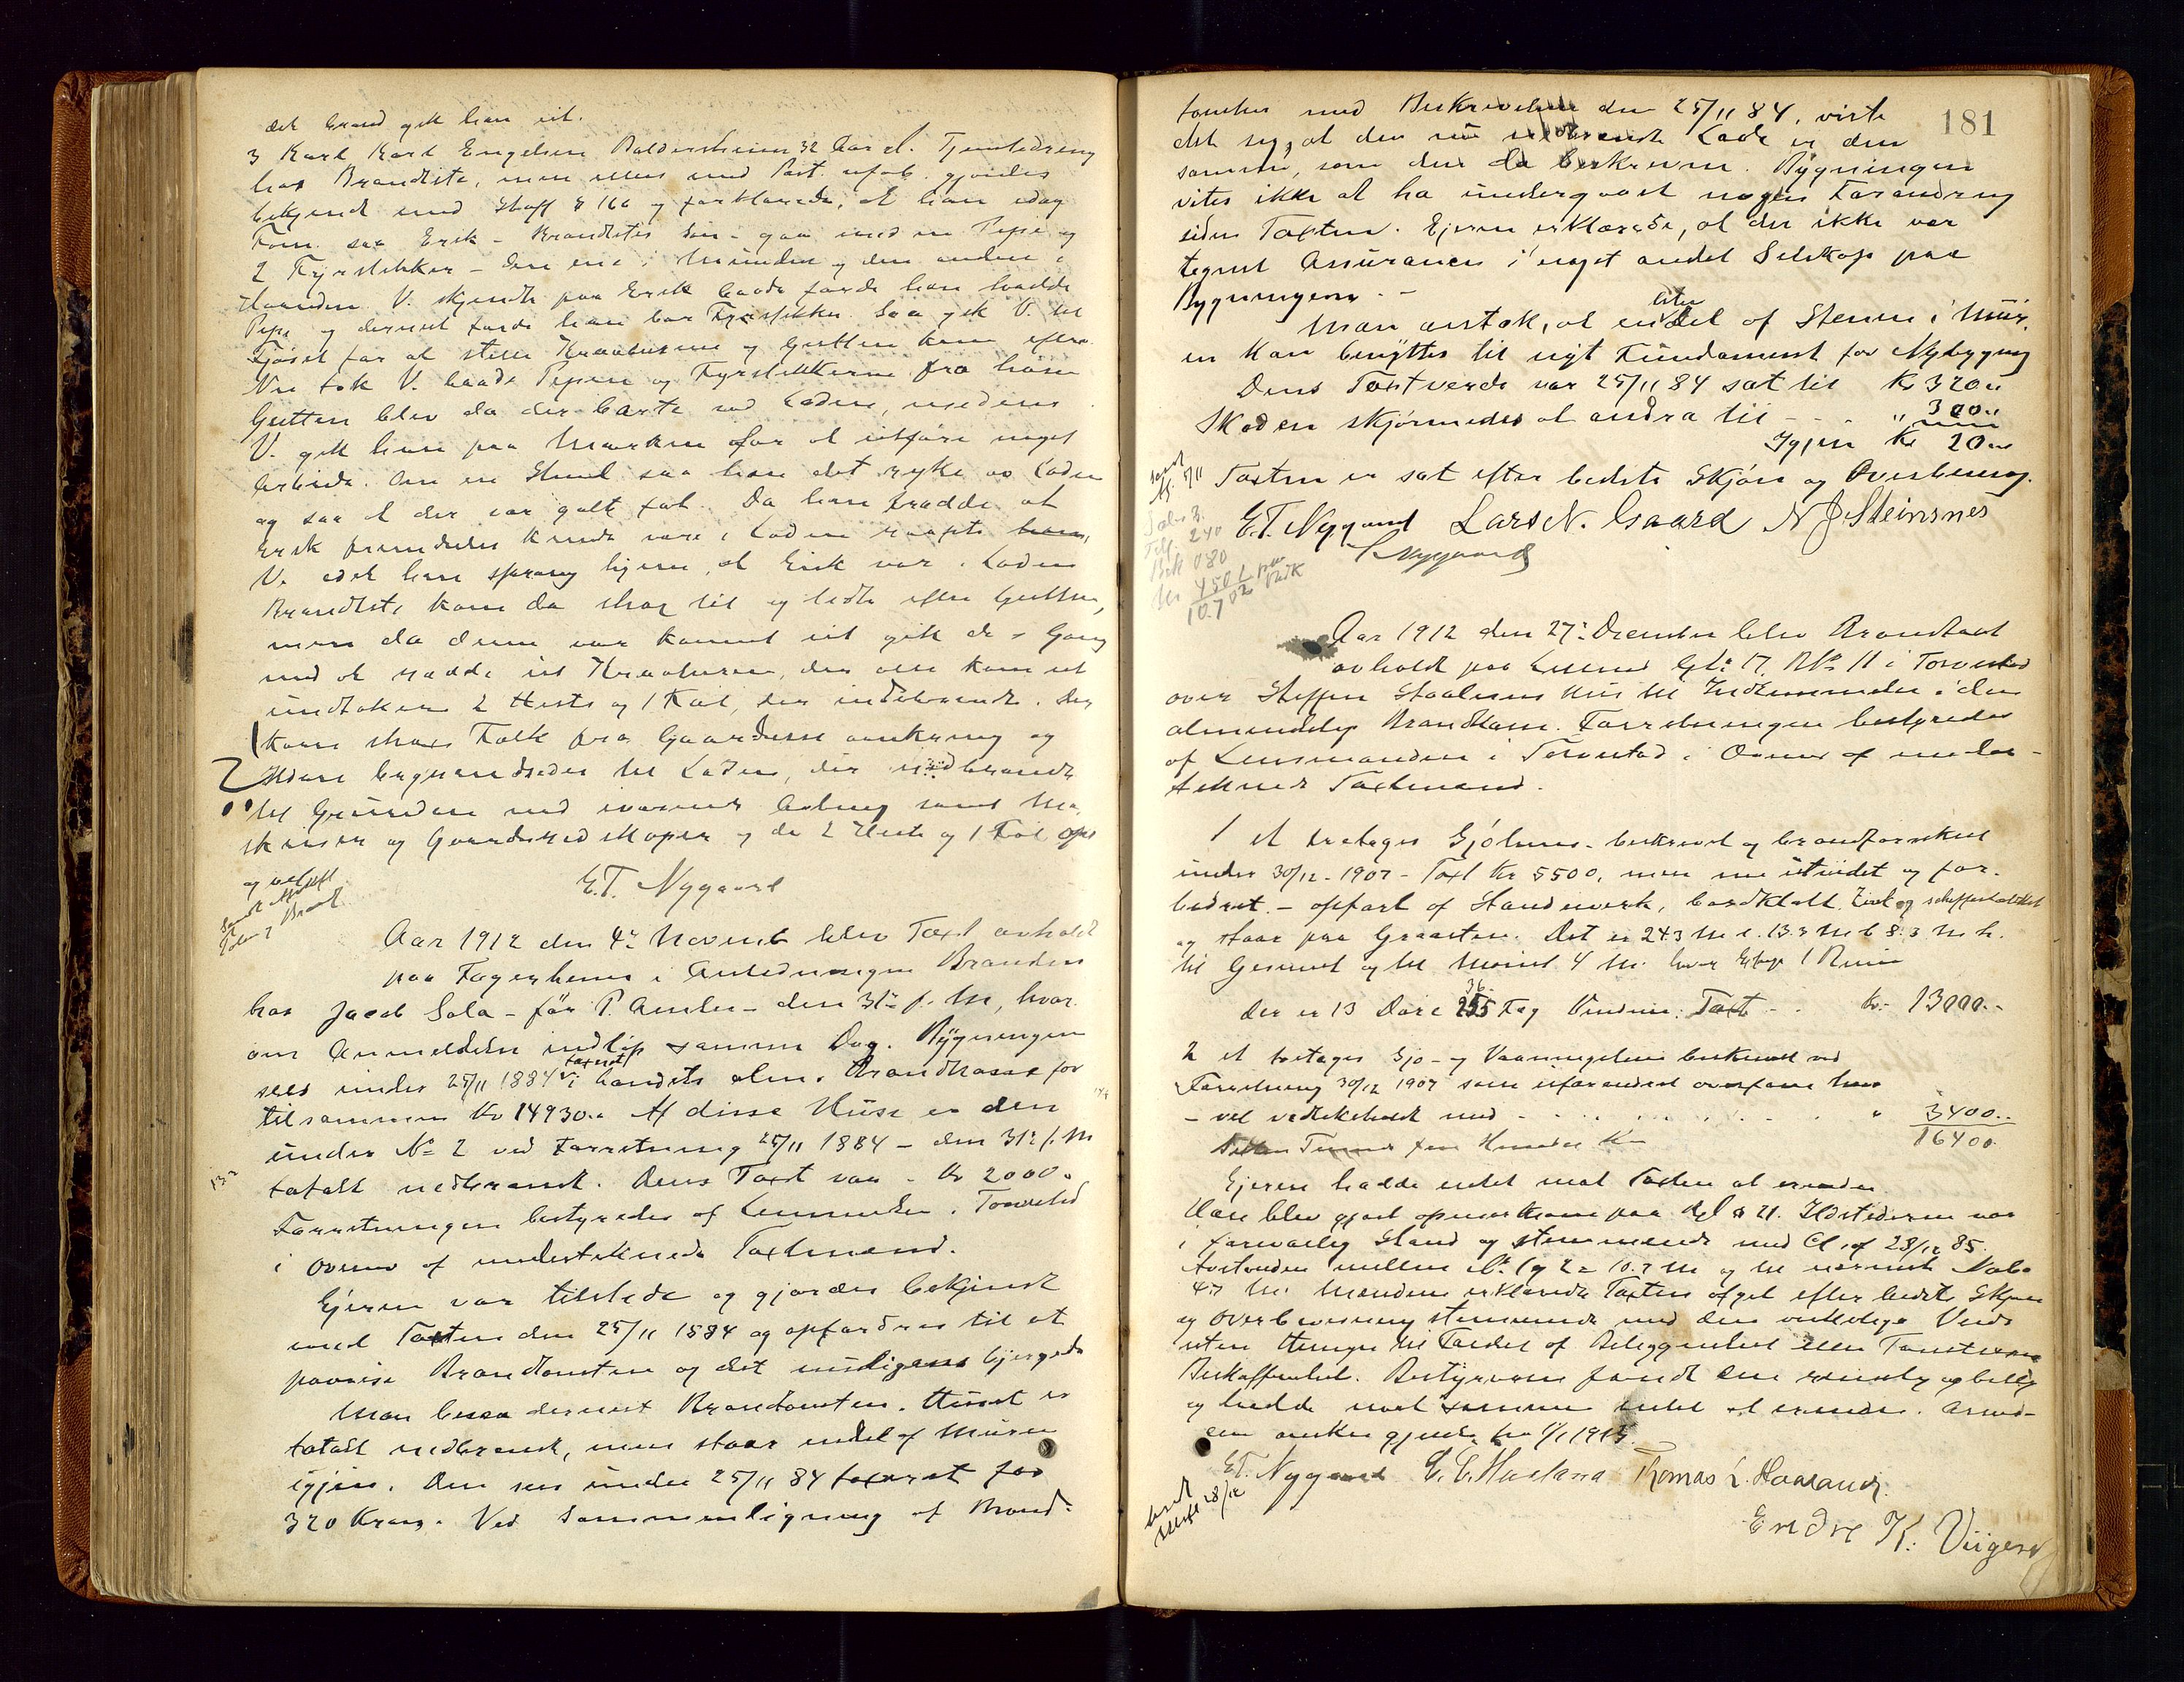 det brand gik han ut.
3 Karl Engelsen Baldersheim 32 Aar d. Tjenestedreng
hos Brandlidte, men ellers med Part. ufob. gjordes
bekjendt med Straff § 166 og forklarede, at han idag
Form. saa Erik - Brandlidtes Søn - gaa med en Pipe og
2 Fyrstikker - den ene i Munden og den anden i
Haanden V. skjendte paa Erik baade fordi han havde
Pipe og dernæst fordi han bar Fyrstikker. Saa gik V. til
Fjøset for at stelle Kreaturene og Gutten kom efter
Nu tok V. baade Pipen og Fyrstikkerne fra ham
Gutten blev da der borte ved Laden, medens
V. gik hen paa Marken for at utføre noget
Arbeide. Om en Stund saa han det ryke av Laden
og saa at der var galt fat. Da han trodde at
Erik fremdeles kunde være i Laden raapte
V. idet han sprang hjem, at Erik var i Laden
Brandlidte kom da strax til og ledte efter Gutten,
men da denne var kommet ut gik de i Gang
med at redde ut Kreaturene, der alle kom ut
undtaken 2 Heste og 1 Kalv, der indebrændte. Der
kom strax Folk fra Gaardene omkring og
Ilden begrændsedes til Laden, der nedbrændte
til Grunden med iværende Avling samt Ma-
skiner og Gaardsredskaper og de 2 Heste og 1
E.T. Nygaard
Aar 1912 den 4de Novemb blev Taxt avholdt
paa Fagerheim i Anledningen Branden
hos Jacob Sola - før P. Amler - den 31te f. M, hvor
om Anmeldelse indløp samme Dag. Bygningen
sees under 25/11 1884 taxeret i Landets alm. Brandkasse for
tilsammen Kr 14930.. Af disse Huse er den
under No 2 ved Forretning 25/11 1884 - den 31te f. M
totalt nedbrændt. Dens Taxt var - Kr 2000.
Forretningen bestyredes af Lensmanden i Torvestad
i Overvær af undertegnede Taxtmænd.
Ejeren var tilstede og gjordes bekjendt
med Taxten den 25/11 1884 og opfordres til at
paavise Brandtomten og det muligens bjergede
Man besaa dernæst Brandtomten. Huset er
totalt nedbrændt, men staar endel af Muren
igjen. Den sees under 25/11 84 taxeret for
320 Kroner. Ved Sammenligning af Brand-
181
tomten med Beskrivelsen den 25/11 84, viste
det seg, at den nu nedbrændte Lade er den
samme, som den da beskrevne. Bygningen
vites ikke at ha undergaaet nogen Forandring
siden Taxten. Ejeren erklærede, at der ikke var
tegnet Assurance i noget andet Selskap paa
Bygningerne. -
Man antok, at en liten del af Stenene i Mur-
en kan benyttes til nyt Fundament for Nybygning
Dens Taxtverdi var 25/11 84 sat til Kr 320..
Skaden skjønnedes at andra til - - - " 300..
Igjen Kr 20..
Taxten er sat efter bedste Skjøn og Overbevisning.
E.T. Nygaard Lars N. Gaard N J Steinsnes
Aar 1912 den 27de December blev Brandtaxt
avholdt paa Gb. 17, BNo 11 i Torvestad
over Steffen Staalesens Hus til Indlemmelse i den
almindelige Brandkasse. Forretningen bestyredes
af Lensmanden i Torvestad i Overvær af under-
tegnede Taxtmænd.
1 et tretages Sjøhus - beskrevet og brandforsikret
under 30/12 - 1907 - Taxt Kr 5500, men nu utvidet og for-
bedret. - opført af Standerverk, bordklædt,
og staar paa Graasten. Det er 24.3 M l. 13.3 M b 8.3 M h.
til Gesimset og til Mønet 4 M. hver Etage 1 Rum
Der er 13 Døre 36 Fag Vinduer. Taxt - - kr. 13000.-
2 et toetages Sjø- og Vaaningshus beskrevet ved
Forretning 30/12 1907 som uforandret overføres her
- vel vedlikeholdt med - - - " 3400..
16400.
Ejeren hadde intet mot Taxten at erindre
Han blev gjort opmerksom paa § 21. Ildstederne var
i forsvarlig Stand og stemmende med C. af 28/12 85.
Avstanden mellem No 1 og 2 = 10.7 M og til nærmeste Nabo
47 M. Mændene erklærede Taxten afgit efter bedste Skjøn
og Overbevisning stemmende med den virkelige Værdi
uten Hensyn til Fordel af Beliggenhed eller Tomtens
Beskaffenhet. Bestyreren fandt den rimelig og billig
og hadde mot samme intet at erindre. Assurancen
ønskes gjældende fra 1/1 1913.
E.T. Nygaard E. E. Haaland Thomas L. Haaland.
Endre K. Viigen